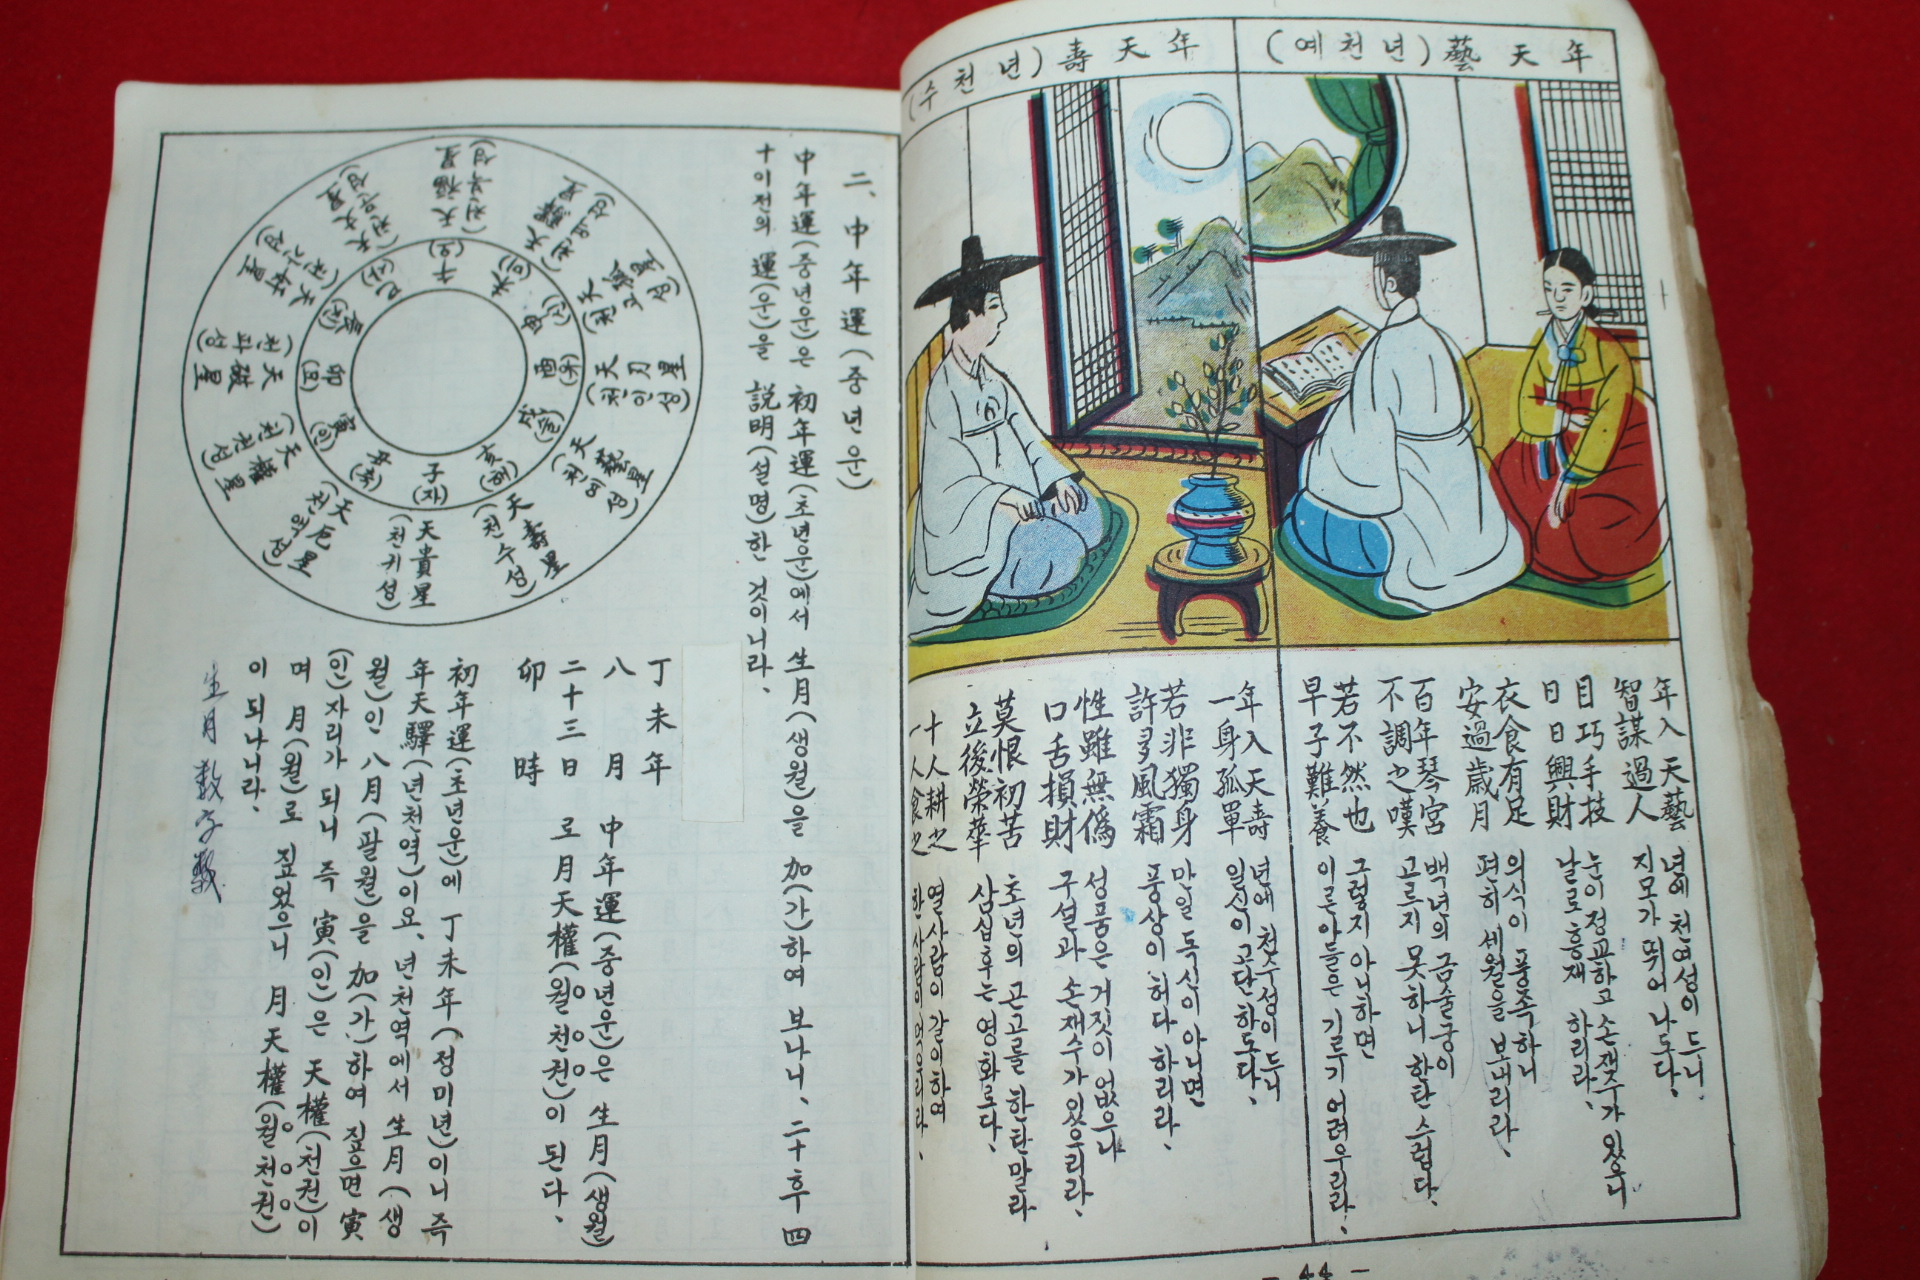 年天藝(예천년)
年入天藝
智謀過人
目巧手技
日日興財
衣食有足
安過歲月
百年琴宮
不調之嘆
若不然也
早子難養
년에 천예성이 드니
지모가 뛰어나도다.
눈이 정교하고 손재주가 있으니
날로 흥재 하리라.
의식이 풍족하니
편히 세월을 보내리라.
백년의 금술궁이
고르지 못하니 한탄스럽다.
그렇지 아니하면
이른 아들은 기르기 어려우리라.
年天壽(수천년)
年入天壽
一身孤單
若非獨身
許多風霜
性雖無僞
口舌損財
莫恨初苦
立後榮華
十人耕之
一人食之
년에 천수성이 드니
일신이 고단하도다.
만일 독신이 아니면
풍상이 허다하리라.
성품은 거짓이 없으나
구설과 손재수가 있으리라.
초년의 고고를 한탄말라
삼십후는 영화로다.
열사람이 갈이하여
한사람이 먹으리라.
- 44 -
二、中年運(중년운)
中年運(중년운)은 初年運(초년운)에서 生月(생월)을 加(가)하여 보나니、二十후 四
十이전의 運(운)을 説明(설명)한 것이니라、
丁未年
八月
二十三日
卯時
中年運(중년운)은 生月(생월)
로 月天權(월천권)이 된다、
初年運(초년운)에 丁未年(정미년)이니 즉
年天驛(년천역)이요、년천역에서 生月(생
월)인 八月(팔월)을 加(가)하여 짚으면 寅
(인)자리가 되니 즉 寅(인)은 天權(천권)이
며 月(월)로 짚었으니 月天權(월천권)
이 되나니라、
生月 数字数
天貴星(천귀성)
天厄星(천액성)
天權星(천권성)
天破星(천파성)
天奸星(천간성)
天文星(천문성)
天福星(천복성)
天驛星(천역성)
天孤星(천고성)
天刃星(천인성)
天藝星(천예성)
天壽星(천수성)
子(자)
丑(축)
寅(인)
卯(묘)
辰(진)
巳(사)
午(오)
未(미)
申(신)
酉(유)
戌(술)
亥(해)